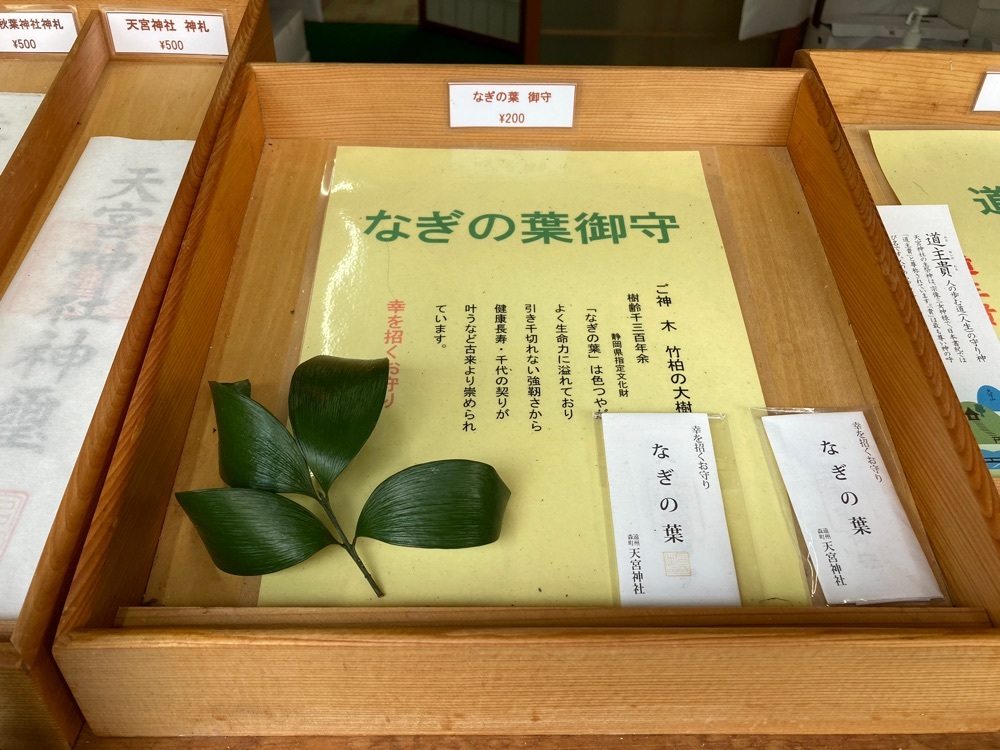 秋葉神社神札
¥500
天宮神社 神札
¥500
天宮神社
なぎの葉 御守
¥200
なぎの葉御守
ご神 木 竹柏の大樹
樹齢千三百年余
静岡県指定文化財
「なぎの葉」は色つやが
よく生命力に溢れており
引き千切れない強靭さから
健康長寿・千代の契りが
叶うなど古来より崇められ
ています。
幸を招くお守り
幸を招くお守り
なぎの葉
遠州
森町
天宮神社
幸を招くお守り
なぎの葉
遠州
森町
天宮神社
道
道主貴 人の歩む道(人生)の守り神